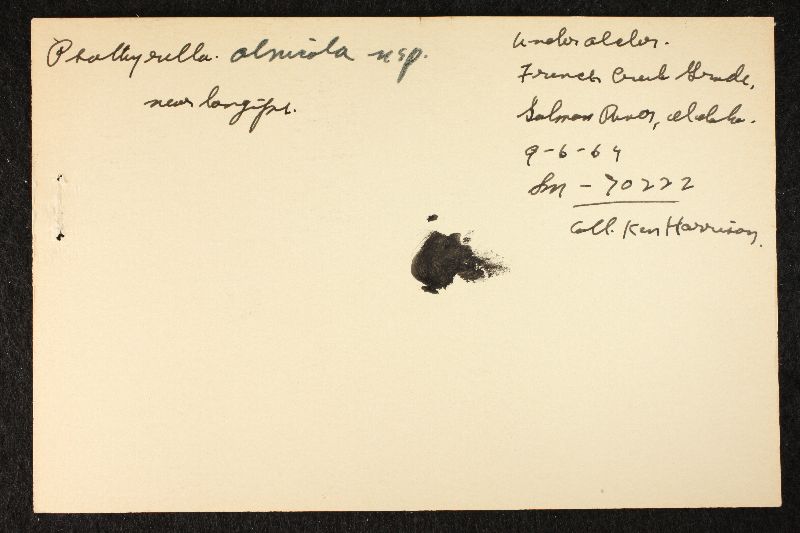 Psathyrella. alnicola nsp.
near longipes.
Under alder.
French Creek Grade,
Salmon River, Idaho.
9-6-64
Sm - 70222
Coll. Ken Harrison.